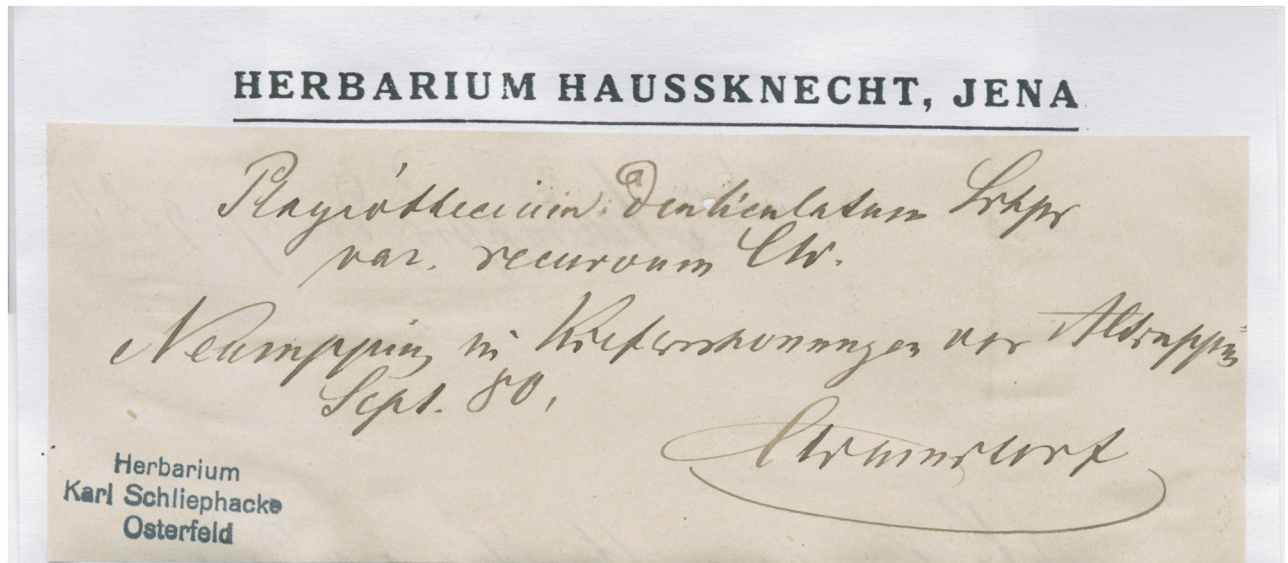 HERBARIUM HAUSSKNECHT, JENA
Plagiothecium denticulatum
var. recurvum
Neuruppin, in Kiefernschonungen vor Altruppin
Sept. 80,
Herbarium
Karl Schliephacke
Osterfeld